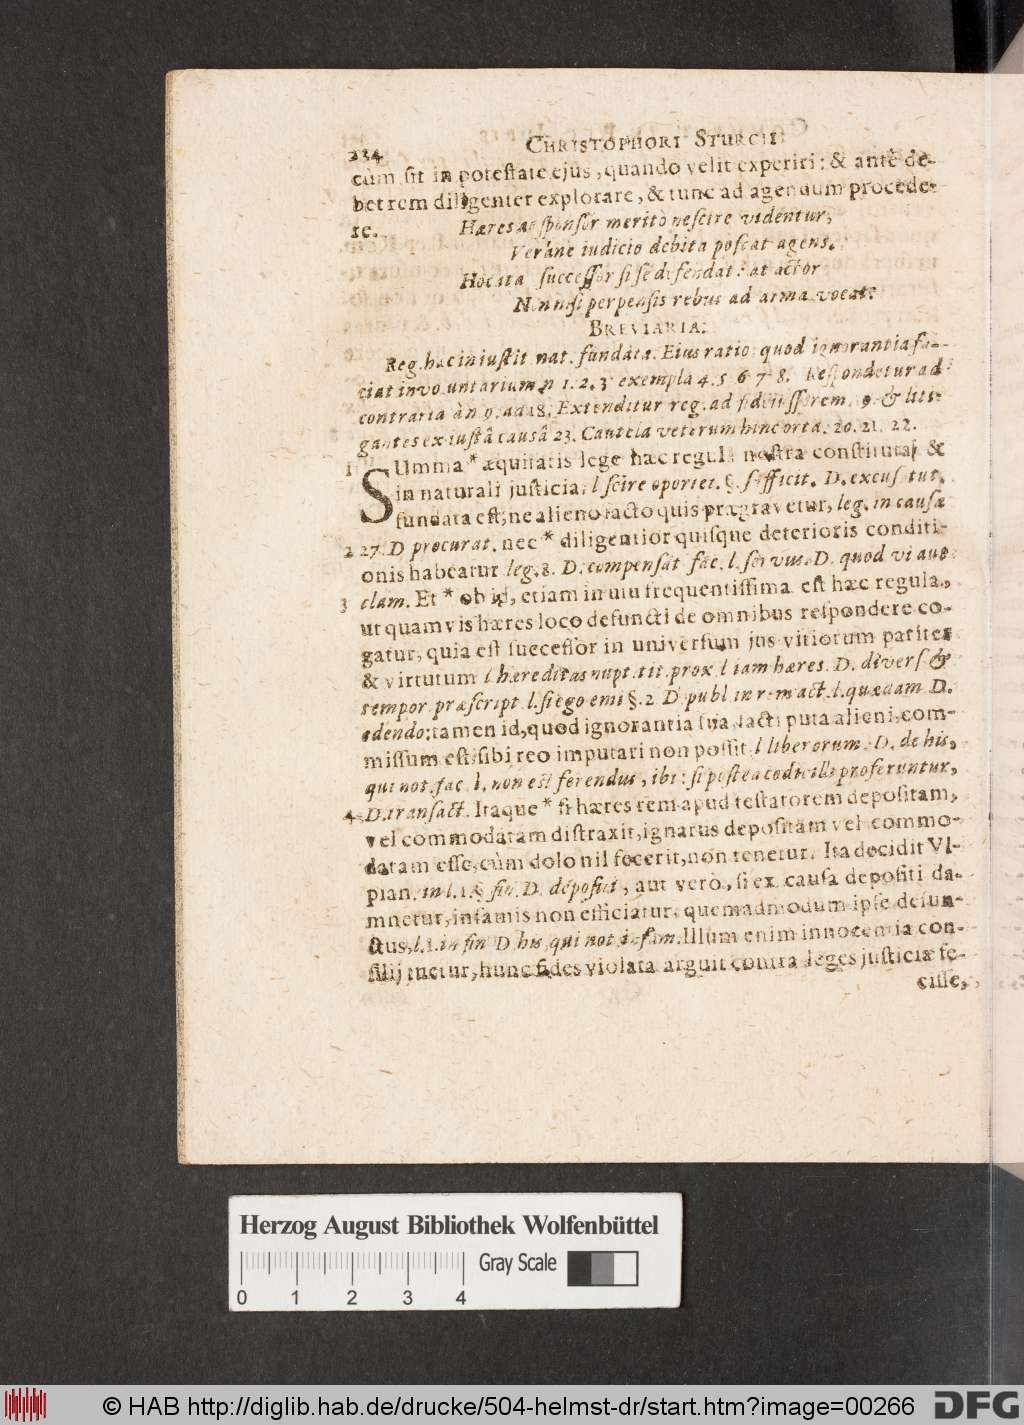 234 CHRISTOPHORI STURCII
cùm sit in potestate ejus, quando velit experiri: & antè de-
bet rem diligenter explorare, & tunc ad agendum procede-
re.
Hæres ac sponsor meritò nescire videntur,
Veráne iudicio debita poscat agens.
Hoc ita successor si se defendat: at actor
Non nisi perpensis rebus ad arma vocat.
BREVIARIA.
Reg. hæc in iustit. nat. fundata. Eius ratio: quod ignorantia fa-
ciat involuntarium n 1. 2. 3 exempla 4. 5 6 7 8. Respondetur ad
contraria àn 9. ad 18. Extenditur reg. ad fideiussorem. 9. & liti-
gantes ex iustâ causâ 23. Cautela veterum hinc orta. 20. 21. 22.
1 SUmma * æquitatis lege hæc regula nostra constituta, &
in naturali justicia, l scire oportet. §. sufficit. D. excus tut.
fundata est, ne alieno facto quis prægravetur, leg. in causæ
2 27. D procurat. nec * diligentior quisque deterioris conditi-
onis habeatur leg. 8. D. compensat fac. l. servius. D. quod vi aut
3 clam. Et * ob id, etiam in usu frequentissima est hæc regula,
ut quamvis hæres loco defuncti de omnibus respondere co-
gatur, quia est successor in universum jus vitiorum pariter
& virtutum l. hæreditas nupt. tit. prox l iam hæres. D. divers &
tempor. præscript. l. si ego emi §. 2 D publ in rem act. l. quædam D.
edendo: tamen id, quod ignorantia sua, facti puta alieni, com-
missum est, sibi reo imputari non possit l liberorum. D. de his,
qui not. fac. l. non est ferendus, ibi: si postea codicilli proferuntur,
4 D. transact. Itaque * si hæres rem apud testatorem depositam,
vel commodatam distraxit, ignarus depositam vel commo-
datam esse, cùm dolo nil fecerit, non tenetur. Ita decidit Vl-
pian. in l. 1. § fin. D. deposit, aut verò, si ex causa depositi da-
mnetur, infamis non efficiatur, quemadmodum ipse defun-
ctus, l. 1. in fin D. his, qui not infam. Illum enim innocentia con-
silij tuetur, hunc fides violata arguit contra leges justiciæ fe-
cisse,
Herzog August Bibliothek Wolfenbüttel
Gray Scale
0 1 2 3 4
© HAB http://diglib.hab.de/drucke/504-helmst-dr/start.htm?image=00266
DFG